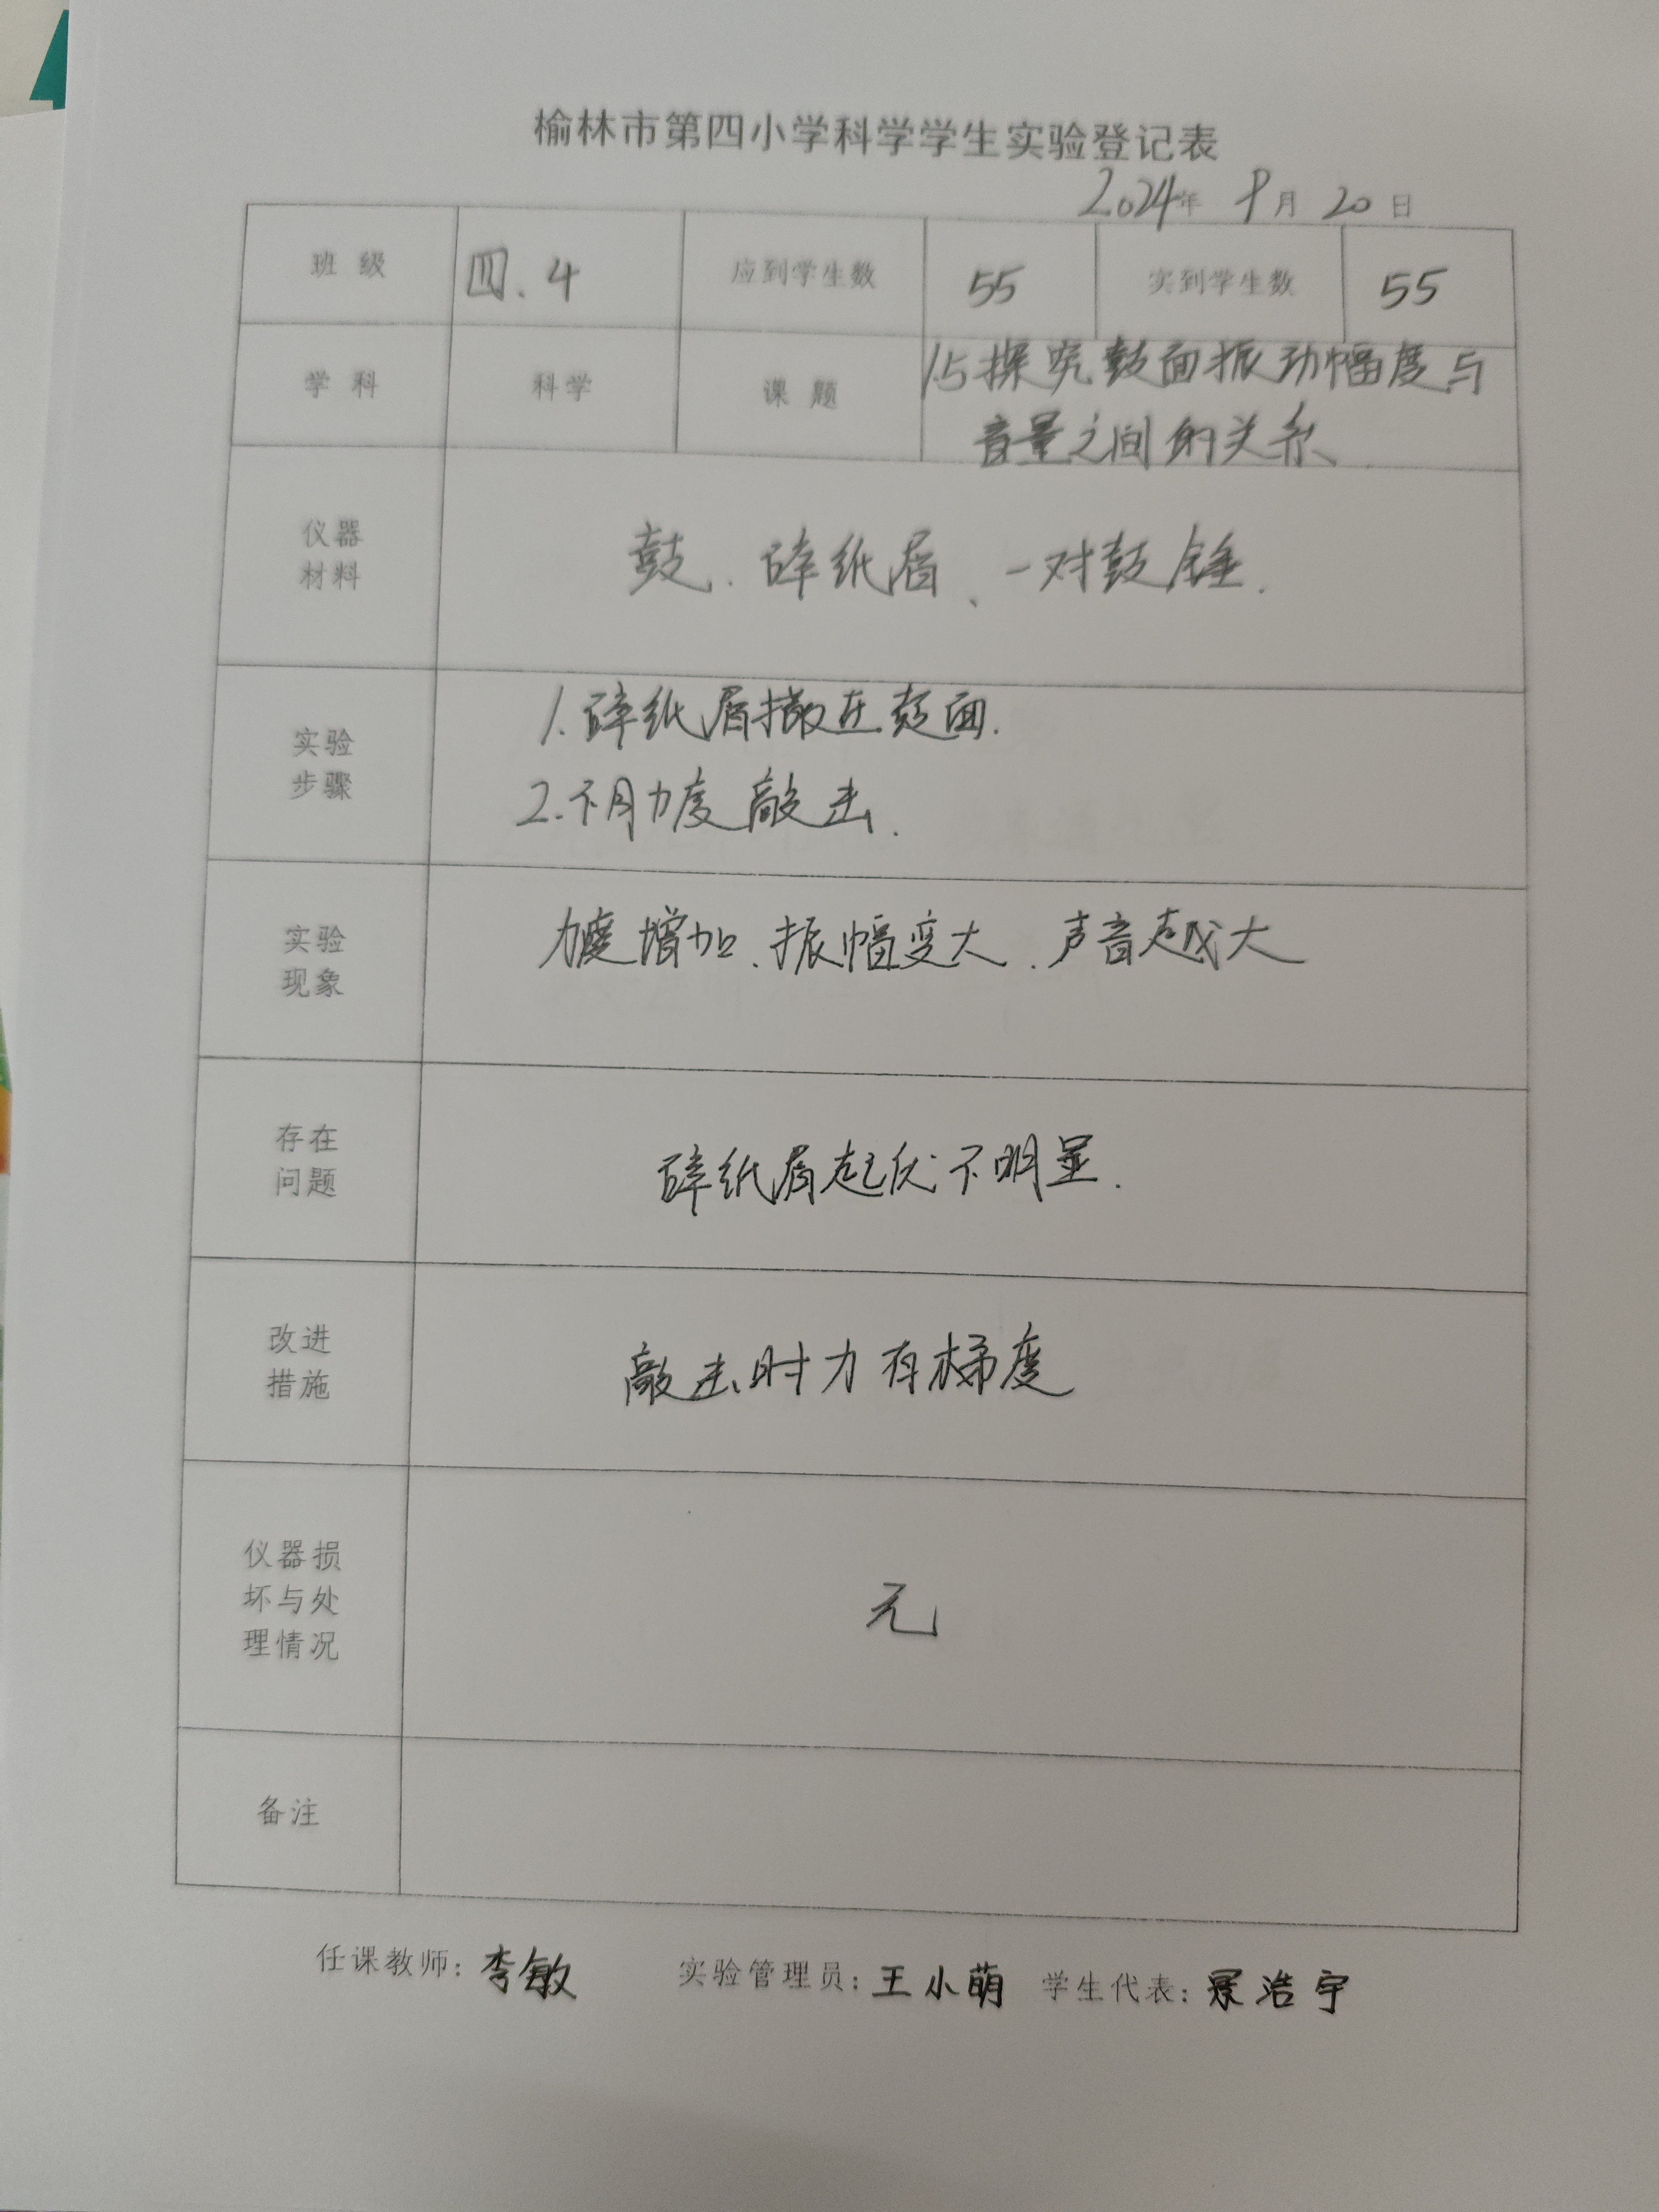 榆林市第四小学科学学生实验登记表
2024年 9月 20日
班 级 四.4 应到学生数 55 实到学生数 55
学 科 科学 课 题 1.5探究鼓面振动幅度与
音量之间的关系
仪器
材料
鼓、碎纸屑、一对鼓锤.
实验
步骤
1.碎纸屑撒在鼓面.
2.不同力度敲击.
实验
现象
力度增加、振幅变大、声音越大
存在
问题
碎纸屑起伏不明显.
改进
措施
敲击时力有梯度
仪器损
坏与处
理情况
无
备注
任课教师:李敏 实验管理员:王小萌 学生代表:浩宇